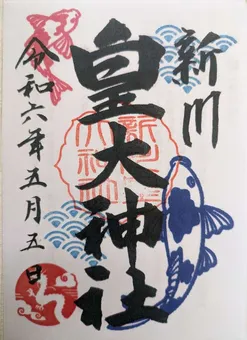 新川
皇大神社
令和六年五月五日